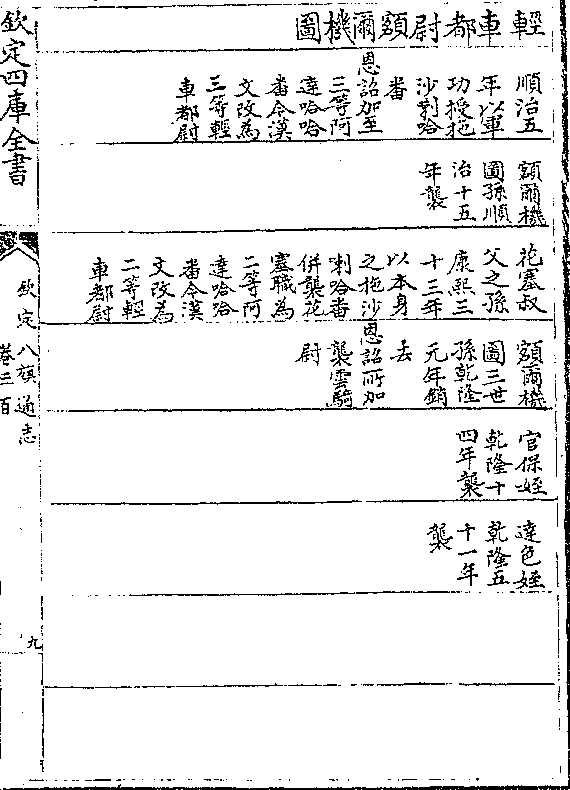 輕車都尉額爾機圖
順治五
年以軍
功授拖
沙喇哈
番
恩詔加至
三等阿
達哈哈
番今漢
文改為
三等輕
車都尉
額爾機
圖孫順
治十五
年襲
花塞叔
父之孫
康熙三
十三年
以本身
之拖沙
喇哈番
併襲花
塞職為
二等阿
達哈哈
番今漢
文改為
二等輕
車都尉
額爾機
圖三世
孫乾隆
元年銷
去
恩詔所加
襲雲騎
尉
官保姪
乾隆十
四年襲
達色姪
乾隆五
十一年
襲
欽定四庫全書
欽定八旗通志
卷三百
九